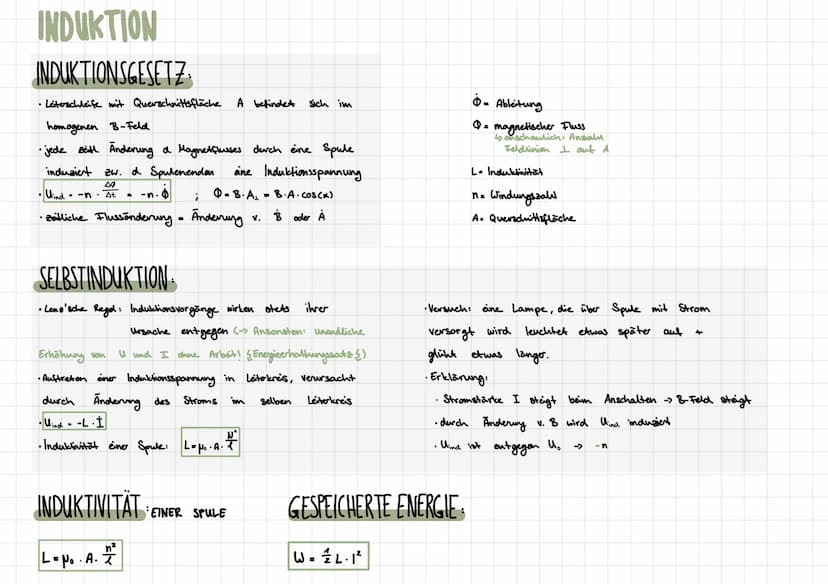 INDUKTION
INDUKTIONSGESETZ:
· Leiterschleife mit Querschnittsfläche A befindet sich im
homogenen B-Feld
· jede zeitl. Änderung d. Magnetflusses durch eine Spule
induziert zw. d. Spulenenden eine Induktionsspannung
· Uind = -n · ΔΦ/Δt = -n · Φ̇ ; Φ = B · A⊥ = B · A · cos(α)
· zeitliche Flussänderung = Änderung v. Ḃ oder Ȧ
Φ̇ = Ableitung
Φ = magnetischer Fluss
↳ anschaulich: Anzahl
Feldlinien ⊥ auf A
L = Induktivität
n = Windungszahl
A = Querschnittsfläche
SELBSTINDUKTION:
· Lenz'sche Regel: Induktionsvorgänge wirken stets ihrer
Ursache entgegen (→ Ansonsten: unendliche
Erhöhung von U und I ohne Arbeit! ⚡Energieerhaltungssatz⚡)
· Auftreten einer Induktionsspannung in Leiterkreis, verursacht
durch Änderung des Stroms im selben Leiterkreis
· Uind = -L · İ
· Induktivität einer Spule: L = μ₀ · A · N²/ℓ
· Versuch: eine Lampe, die über Spule mit Strom
versorgt wird leuchtet etwas später auf +
glüht etwas länger.
· Erklärung:
· Stromstärke I steigt beim Anschalten → B-Feld steigt
· durch Änderung v. B wird Uind induziert
· Uind ist entgegen U₀ → -n
INDUKTIVITÄT: EINER SPULE
L = μ₀ · A · n²/ℓ
GESPEICHERTE ENERGIE:
W = 1/2 L · I²